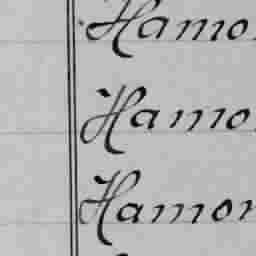 Hamo
Hamo
Hamon